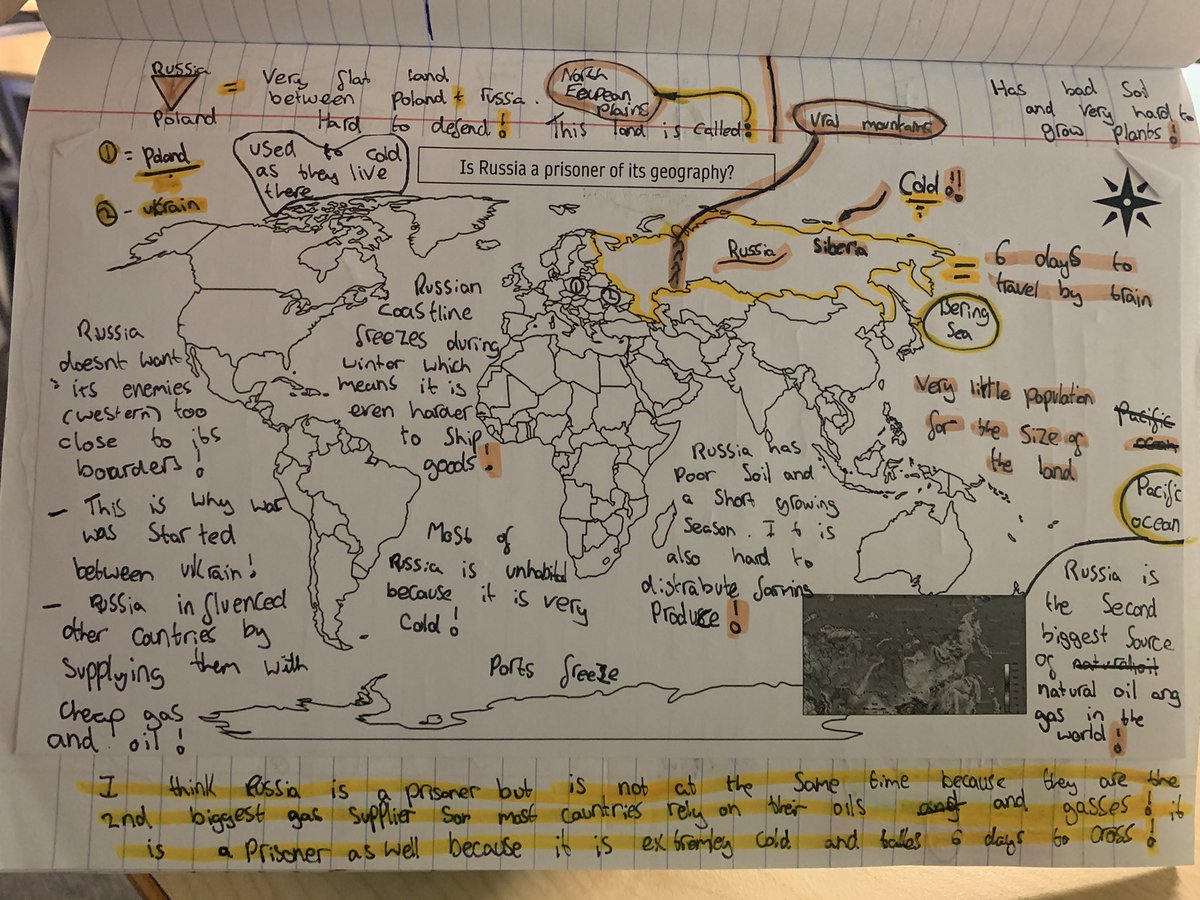 Russia
Poland
= Very flat land
between poland + russia.
Hard to defend!
North
European
plains
This land is called:
Ural mountains
Has bad Soil
and very hard to
grow plants!
1 = Poland
2 - ukrain
used to cold
as they live
there
Is Russia a prisoner of its geography?
Cold!!
Russia
Siberia
= 6 days to
travel by train
Bering
Sea
1
2
Russian
coastline
freezes during
winter which
means it is
even harder
to ship
goods!
Russia
doesnt want
its enemies
(western) too
close to its
boarders!
- This is why war
was started
between ukrain!
- Russia influenced
other countries by
supplying them with
cheap gas
and oil!
Very little population
for the size of
the land
Pacific
ocean
Pacific
ocean
Russia has
Poor Soil and
a short growing
season. It is
also hard to
distribute farming
Produce!
Most of
Russia is unhabited
because it is very
cold!
Ports freeze
Russia is
the second
biggest source
of
natural oil and
gas in the
world!
I think Russia is a prisoner but is not at the same time because they are the
2nd biggest gas supplier so most countries rely on their oils and gasses! it
is a Prisoner as well because it is extremley cold and takes 6 days to cross!